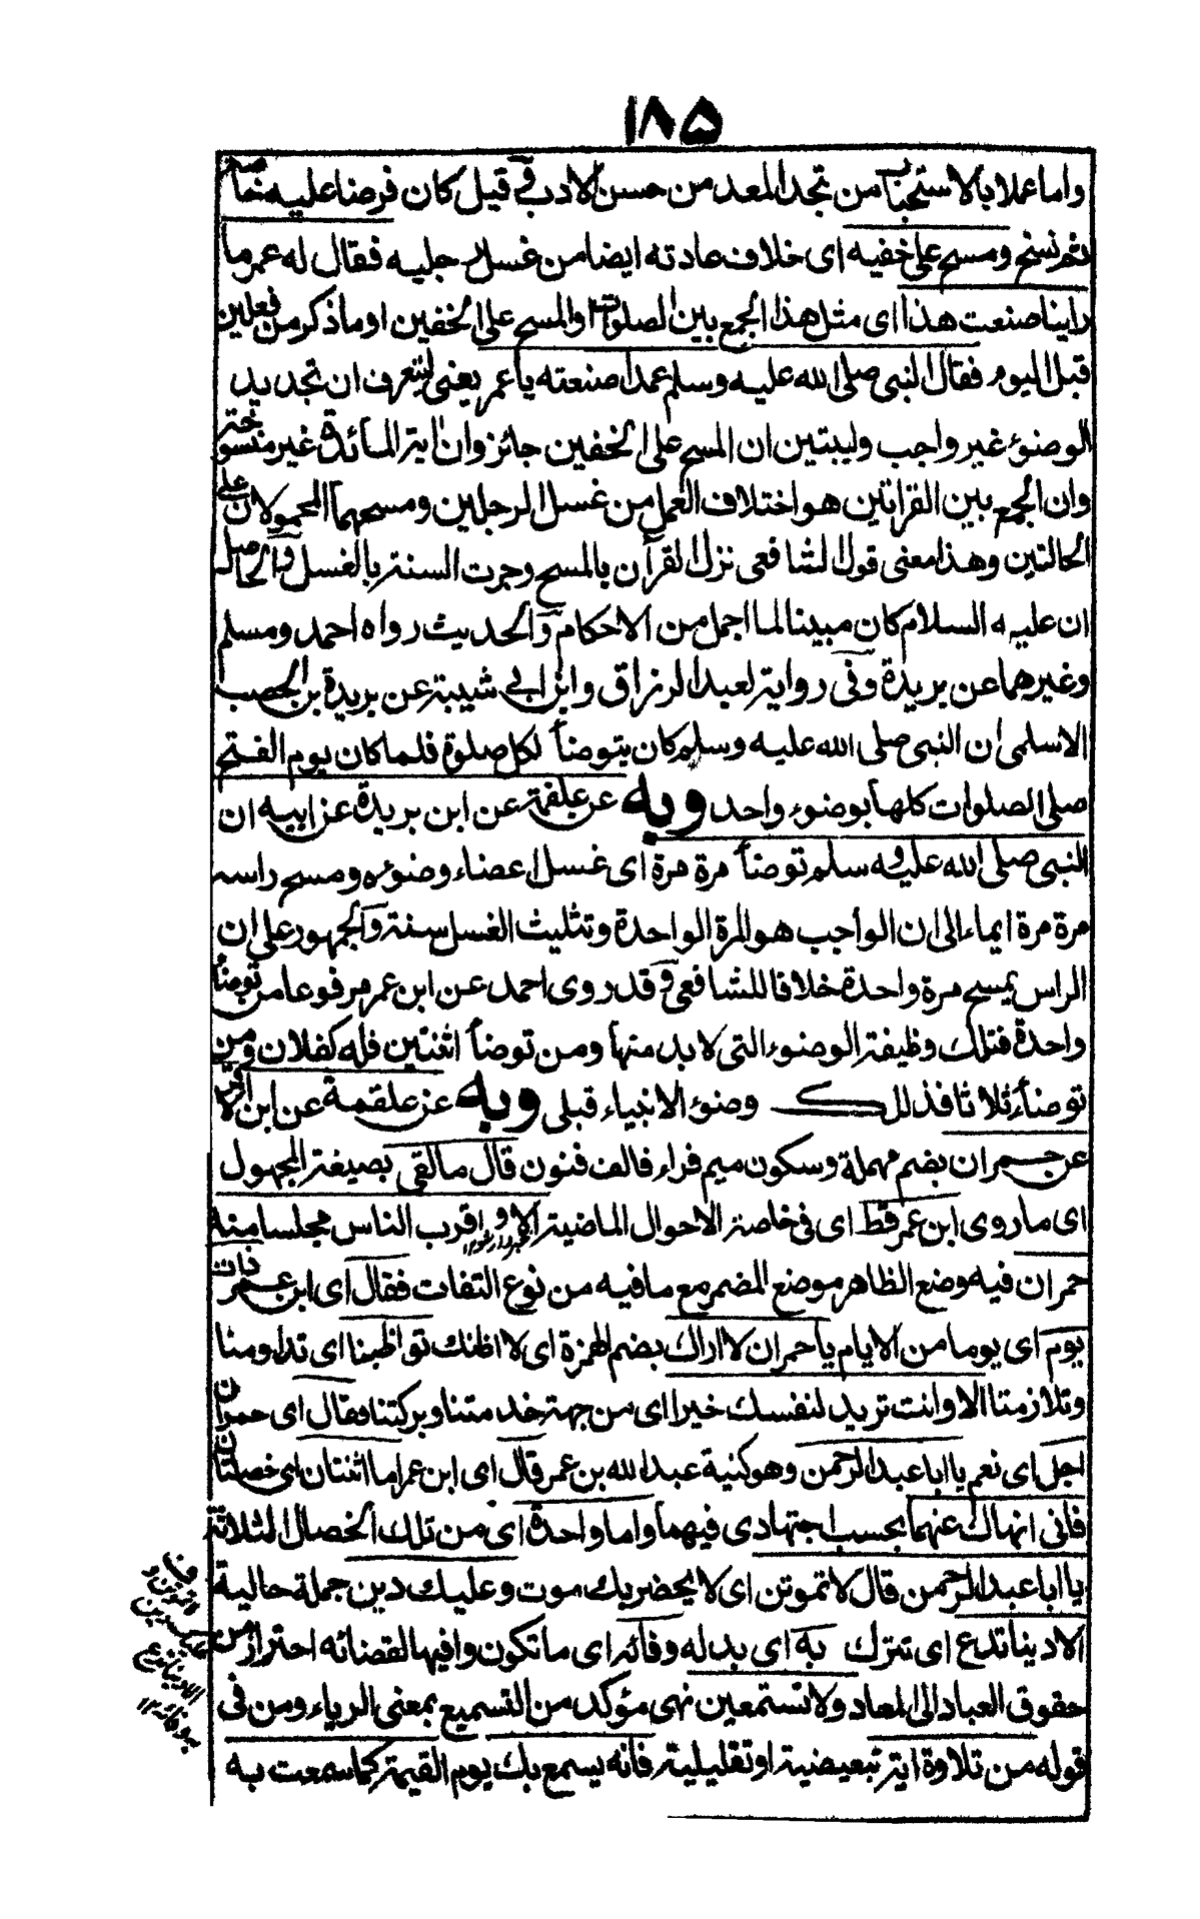 ١٨٥
واما عملا بالاستحباب من تجد المعد من حسن الادب قيل كان فرضا عليه خاصة
ثم نسخ ومسح على خفيه اى خلاف عادته ايضا من غسل رجليه فقال له عمر ما
راينا صنعت هذا اى مثل هذا الجمع بين الصلوات او المسح على الخفين او ما ذكر من فعلين
قبل اليوم فقال النبى صلى الله عليه وسلم عمدا صنعته يا عمر يعنى ليتعرف ان تجديد
الوضوء غير واجب وليبتين ان المسح على الخفين جائز وان اية المائدة غير منسوخة
وان الجمع بين القراتين هو اختلاف العمل من غسل الرجلين ومسحهما المحمولان على
الحالتين وهذا معنى قول الشافعى نزل القرآن بالمسح وجرت السنة بالغسل والحاصل
ان عليه السلام كان مبينا لما اجمل من الاحكام والحديث رواه احمد ومسلم
وغيرهما عن بريدة وفى رواية لعبد الرزاق وابن ابي شيبة عن بريدة بن الحصب
الاسلمى ان النبى صلى الله عليه وسلم كان يتوضأ لكل صلوة فلما كان يوم الفتح
صلى الصلوات كلها بوضوء واحد وبه عن علقمة عن ابن بريدة عن ابيه ان
النبى صلى الله عليه وسلم توضأ مرة مرة اى غسل اعضاء وضوءه ومسح راسه
مرة مرة ايماء الى ان الواجب هو المرة الواحدة وتثليث الغسل سنة والجمهور على ان
الراس يمسح مرة واحدة خلافا للشافعى وقد روى احمد عن ابن عمر مرفوعا من توضأ
واحدة فتلك وظيفة الوضوء التى لا بد منها ومن توضأ اثنتين فله كفلان ومن
توضأ ثلاثا فذلك وضوء الانبياء قبلى وبه عن علقمة عن ابن الاقمر
عن حمران بضم مهملة وسكون ميم فراء فالف فنون قال ما لقى بصيغة المجهول
اى ما روى ابن عمر قط اى فى خاصة الاحوال الماضية الا و اقرب الناس مجلسا منه
حمران فيه وضع الظاهر موضع المضمر مع ما فيه من نوع التفات فقال اى ابن عمر ذات
يوم اى يوما من الايام يا حمران لا اراك بضم الهمزة اى لا اظنك تواظبنا اى تداومنا
وتلازمتنا الا وانت تريد لنفسك خيرا اى من جهة خدمتنا وبركتنا فقال اى حمران
اجل اى نعم يا ابا عبد الرحمن وهو كنية عبد الله بن عمر قال اى ابن عمر اما اثنتان اى خصلتان
فانى انهاك عنهما بحسب اجتهادى فيهما واما واحدة اى من تلك الخصال الثلاثة
يا ابا عبد الرحمن قال لا تموتن اى لا يحضر بك موت وعليك دين جملة حالية
الا دينا تدع اى تترك به اى بدله وفائه اى ما تكون وافيا لقضائه احتراز من
حقوق العباد الى المعاد ولا تستمعين نهى مؤكد من التسميع بمعنى الرياء ومن فى
قوله من تلاوة اية تبعيضية او تقليلية فانه يسمع بك يوم القيمة كما سمعت به